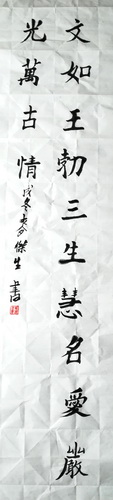 文如王勃三生慧名愛嚴
光萬古情
戊冬月 傑生書